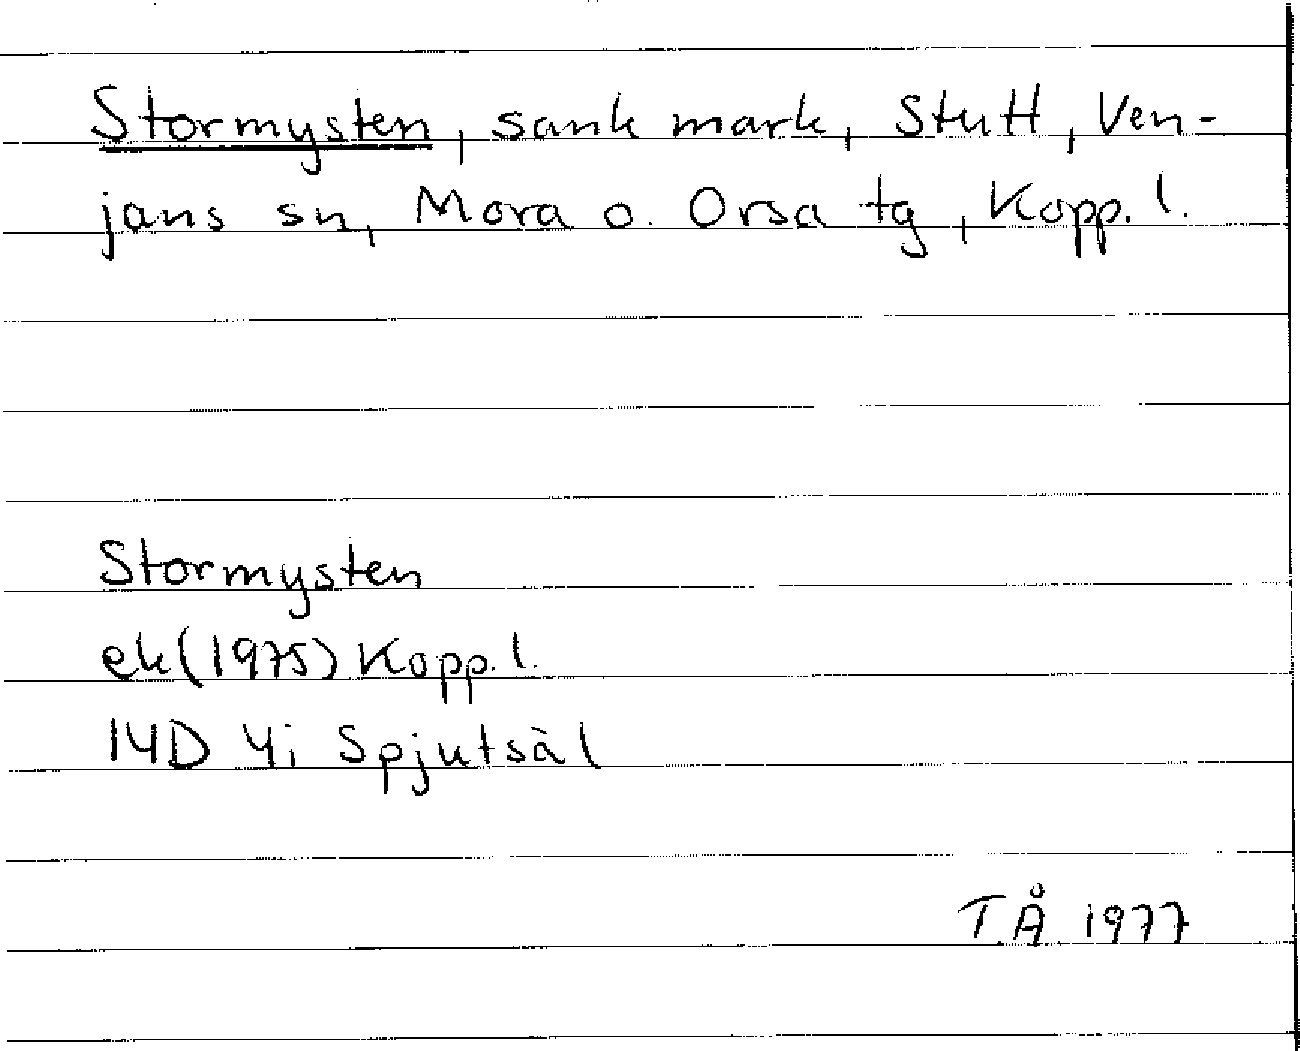 Stormysten, sank mark, Stutt, Ven-
jans sn, Mora o. Orsa tg, Kopp. l.
Stormysten
ek (1975) Kopp. l.
14D 4i Spjutsäl
TÅ 1977